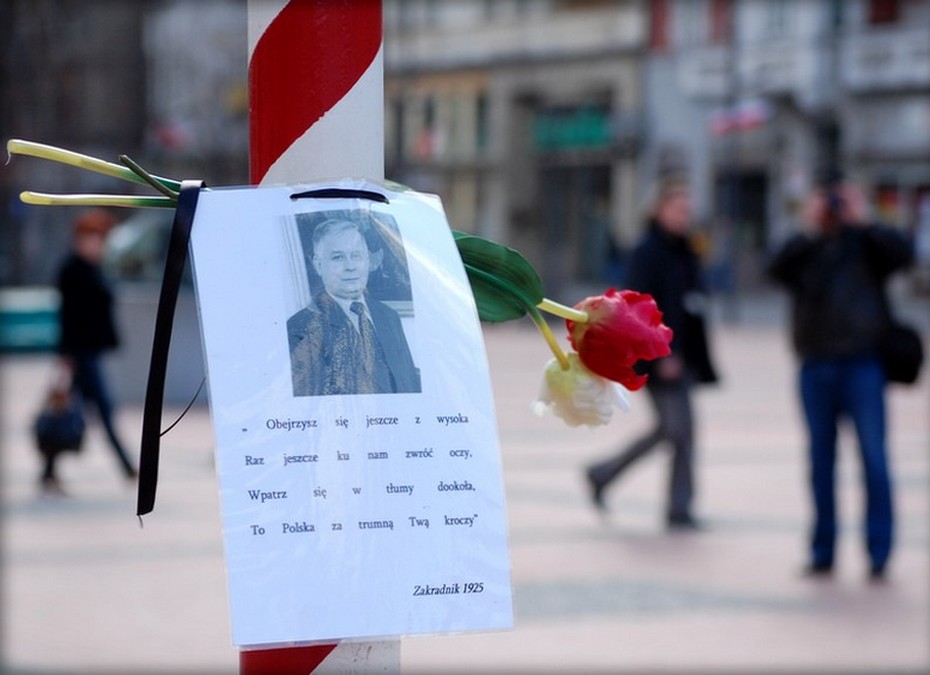 „ Obejrzysz się jeszcze z wysoka
Raz jeszcze ku nam zwróć oczy,
Wpatrz się w tłumy dookoła,
To Polska za trumną Twą kroczy”
Zakradnik 1925